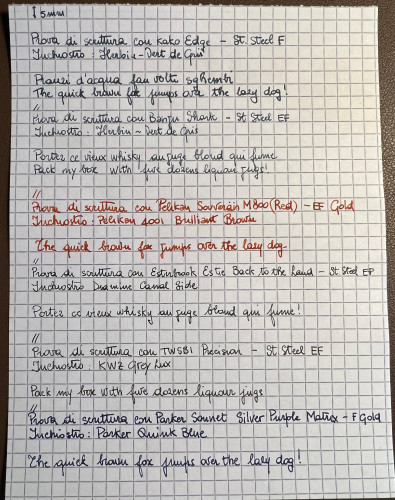 5mm
Prova di scrittura con Kako Edge - St. Steel F
Inchiostro: Herbin - Vert de Gris
Pranzi d'acqua fan volti sghembi
The quick brown fox jumps over the lazy dog!
//
Prova di scrittura con Benu Shark - St Steel EF
Inchiostro: Herbin - Vert de Gris
Portez ce vieux whisky au juge blond qui fume
Pack my box with five dozens liquour jugs!
//
Prova di scrittura con Pelikan Souverän M800 (Red) - EF Gold
Inchiostro: Pelikan 4001 Brilliant Brown
The quick brown fox jumps over the lazy dog
//
Prova di scrittura con Esterbrook Estie Back to the Land - St Steel EF
Inchiostro Diamine Canal Side
Portez ce vieux whisky au juge blond qui fume!
//
Prova di scrittura con TWSBI Precision - St Steel EF
Inchiostro: KWZ Grey Lux
Pack my box with five dozens liquour jugs
//
Prova di scrittura con Parker Sonnet Silver Purple Matrix - F Gold
Inchiostro: Parker Quink Blue
The quick brown fox jumps over the lazy dog!